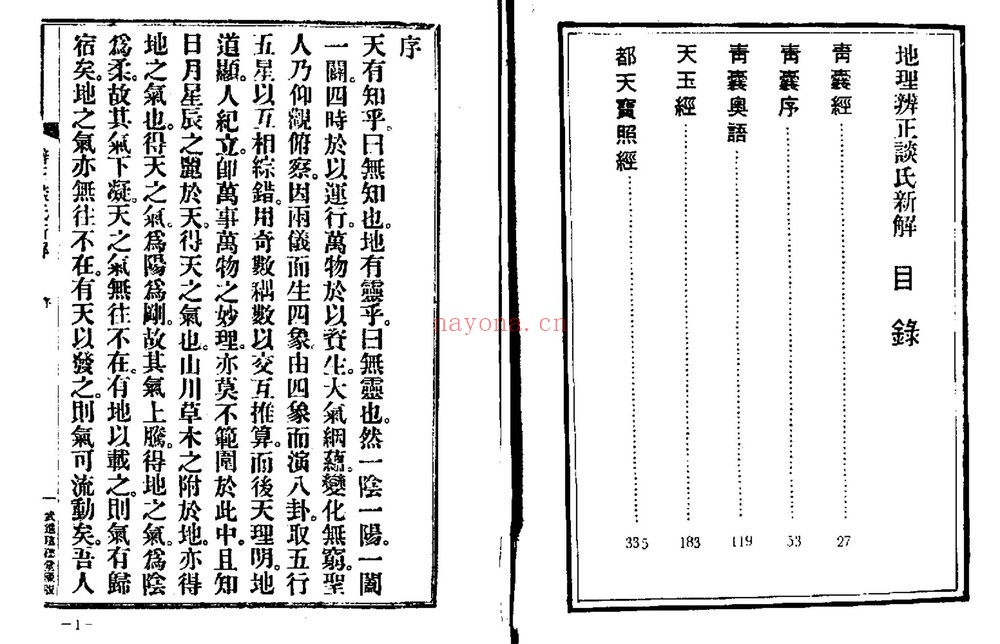 地理辨正談氏新解 目錄
青囊經 27
青囊序 53
青囊奧語 119
天玉經 183
都天寶照經 335
序
天有知乎。曰無知也。地有靈乎。曰無靈也。然一陰一陽。一闔
一闢。四時於以運行。萬物於以資生。大氣絪蘊。變化無窮。聖
人乃仰觀俯察。因兩儀而生四象。由四象而演八卦。取五行
五星以互相綜錯。用奇數耦數以交互推算。而後天理明。地
道顯。人紀立。卽萬事萬物之妙理。亦莫不範圍於此中。且知
日月星辰之麗於天。得天之氣也。山川草木之附於地。亦得
地之氣也。得天之氣。爲陽爲剛。故其氣上騰。得地之氣。爲陰
爲柔。故其氣下凝。天之氣無往不在。有地以載之。則氣有歸
宿矣。地之氣亦無往不在。有天以發之。則氣可流動矣。吾人
序
一
-1-
nayona.cn